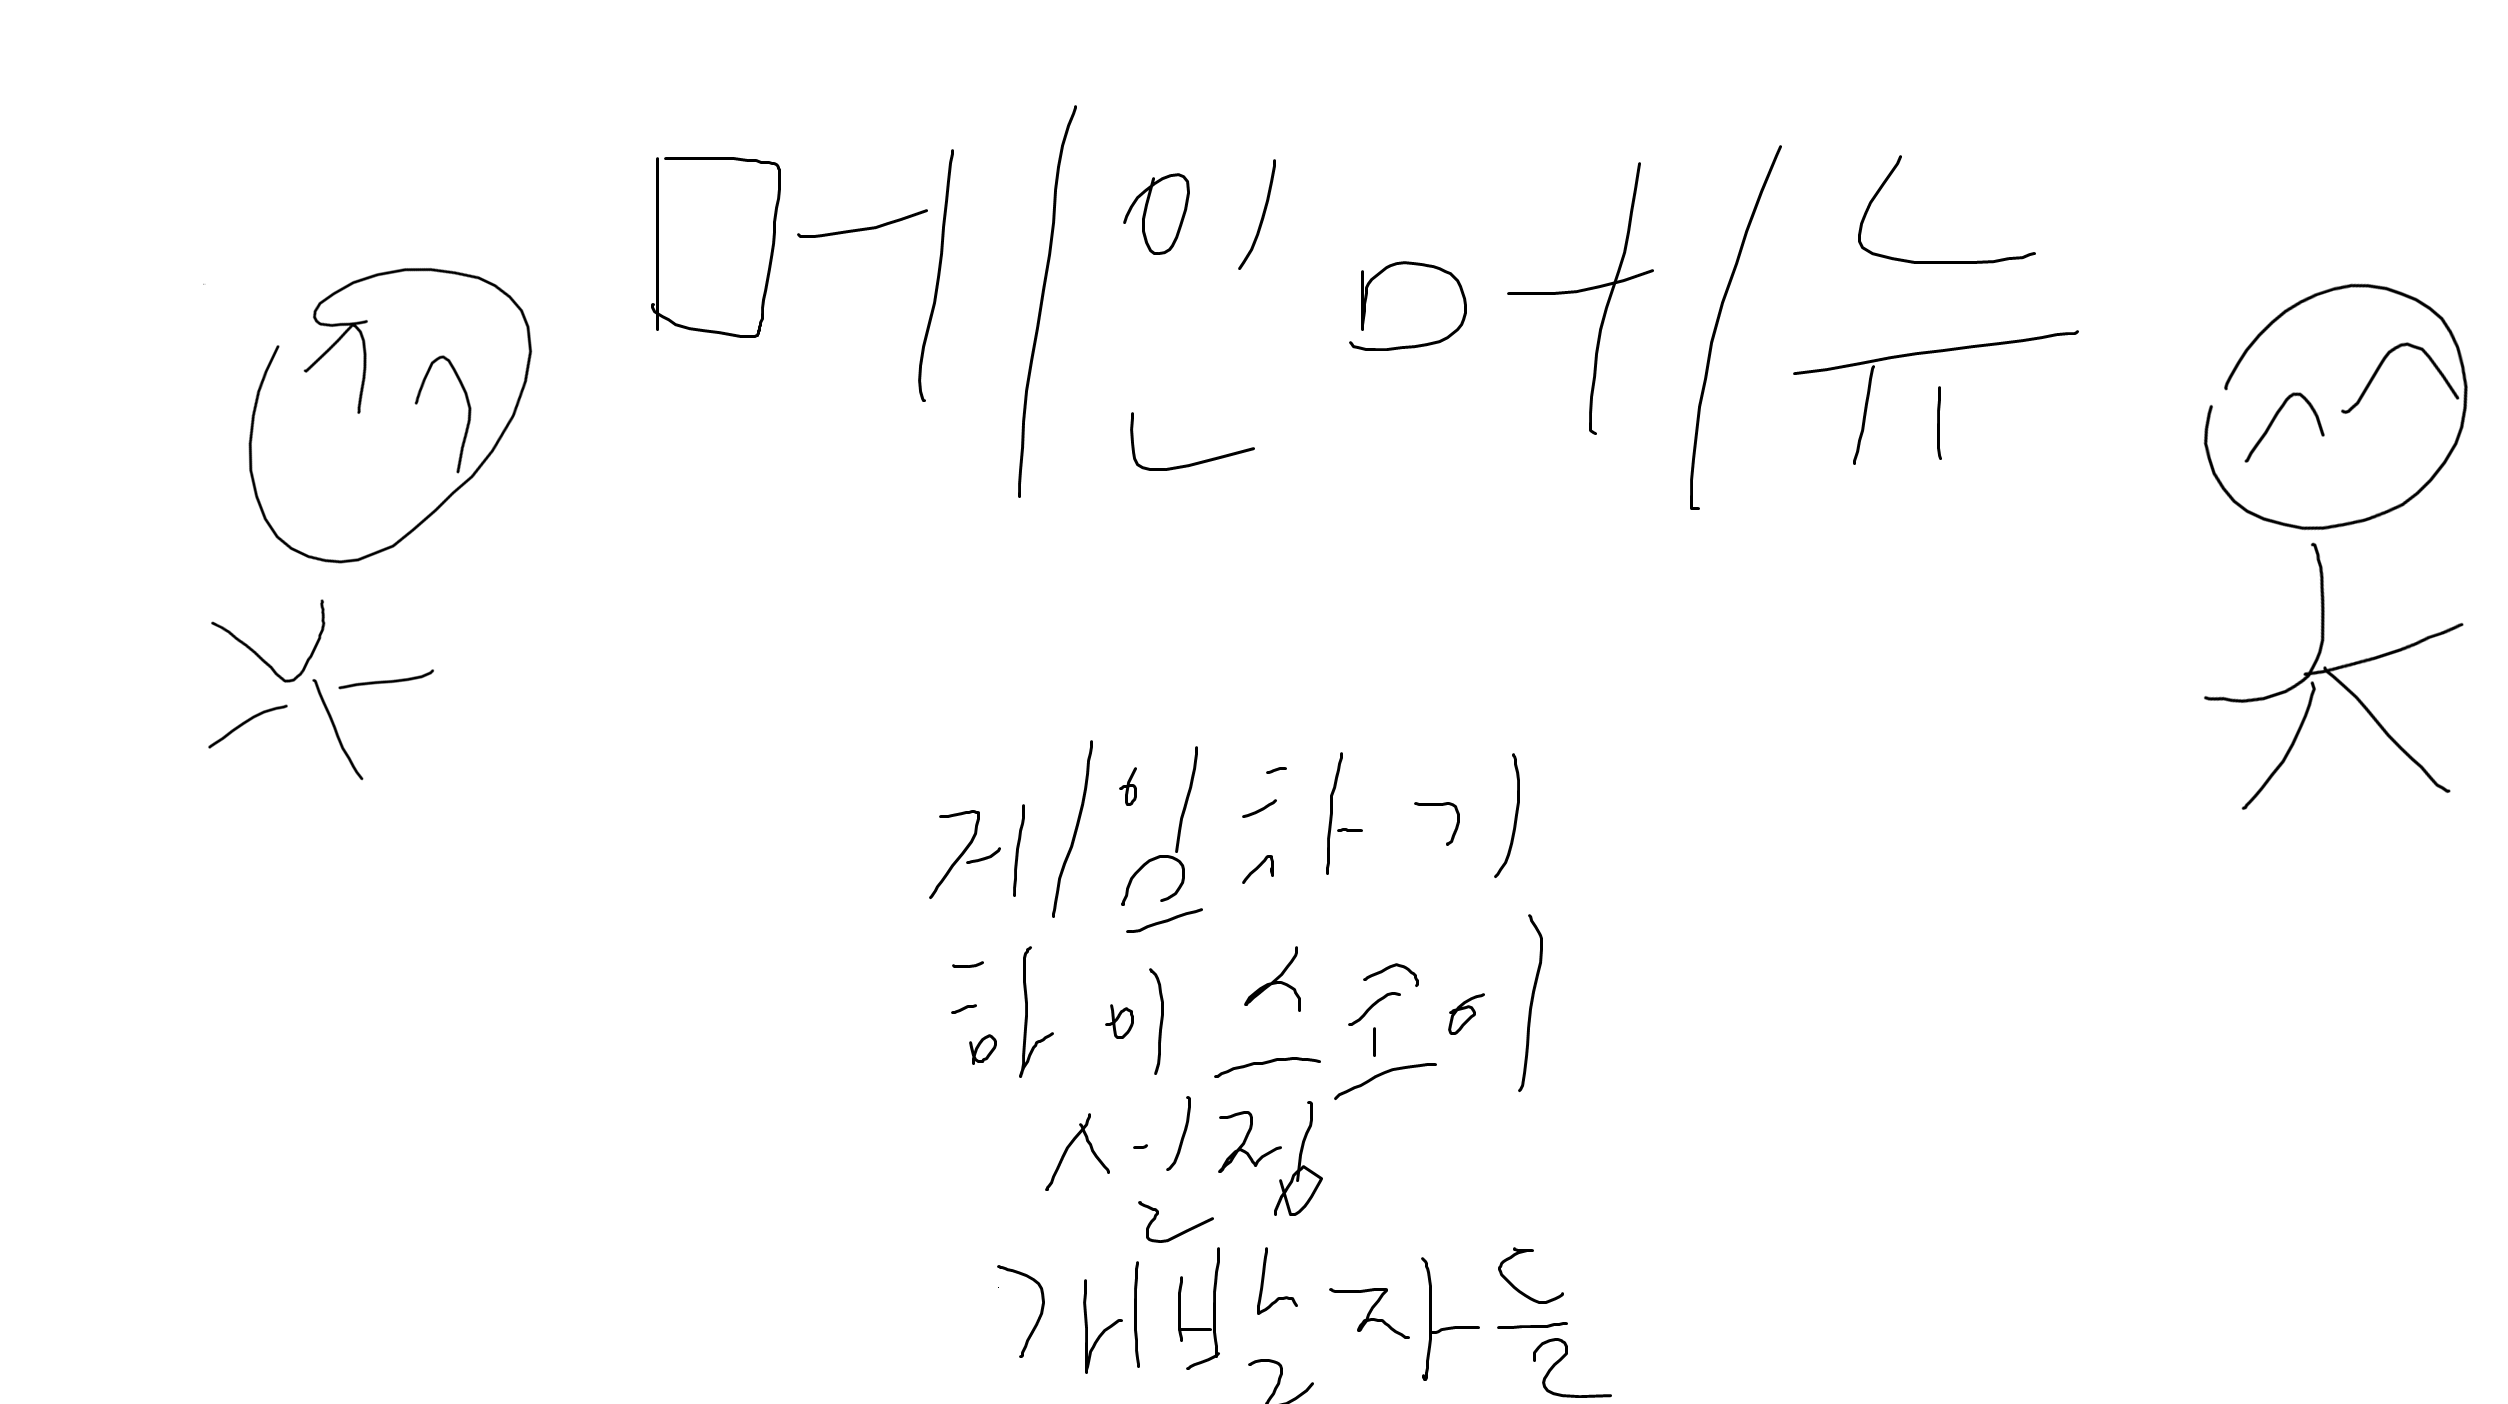 메인메뉴
게임하기
하이스코어
설정
개발자들